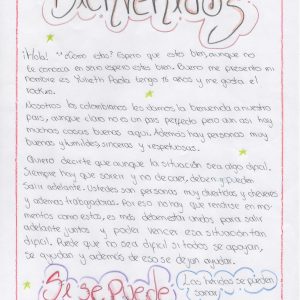 Bienvenidos
¡Hola! ¿Cómo estas? Espero que estes bien, aunque no
te conozca en sino espero estes bien. Bueno me presento mi
nombre es Yulieth Paola tengo 15 años y me gusta el
Nosotros los colombianos les damos la bienvenida a nuestro
pais, aunque claro no es un pais perfecto pero aun asi hay
muchas cosas buenas aqui. Ademas hay personas muy
buenas y humildes, sinceras y respetuosas.
Quiero decirte que aunque la situación sea algo dificil.
Siempre hay que sonreir y no de caer, deben y pueden
Salir adelante. Ustedes son personas muy divertidas y cheveres
y ademas trabajadoras. Por eso no hay que rendirse en mo-
mentos como estos, es más deben estar unidos para salir
adelante juntos y poder vencer esa situación tan
dificil. Puede que no sea dificil si todos se apoyan,
se ayudan y además de eso se dejan ayudar.
Si se puede
Las heridas se pueden
sanar